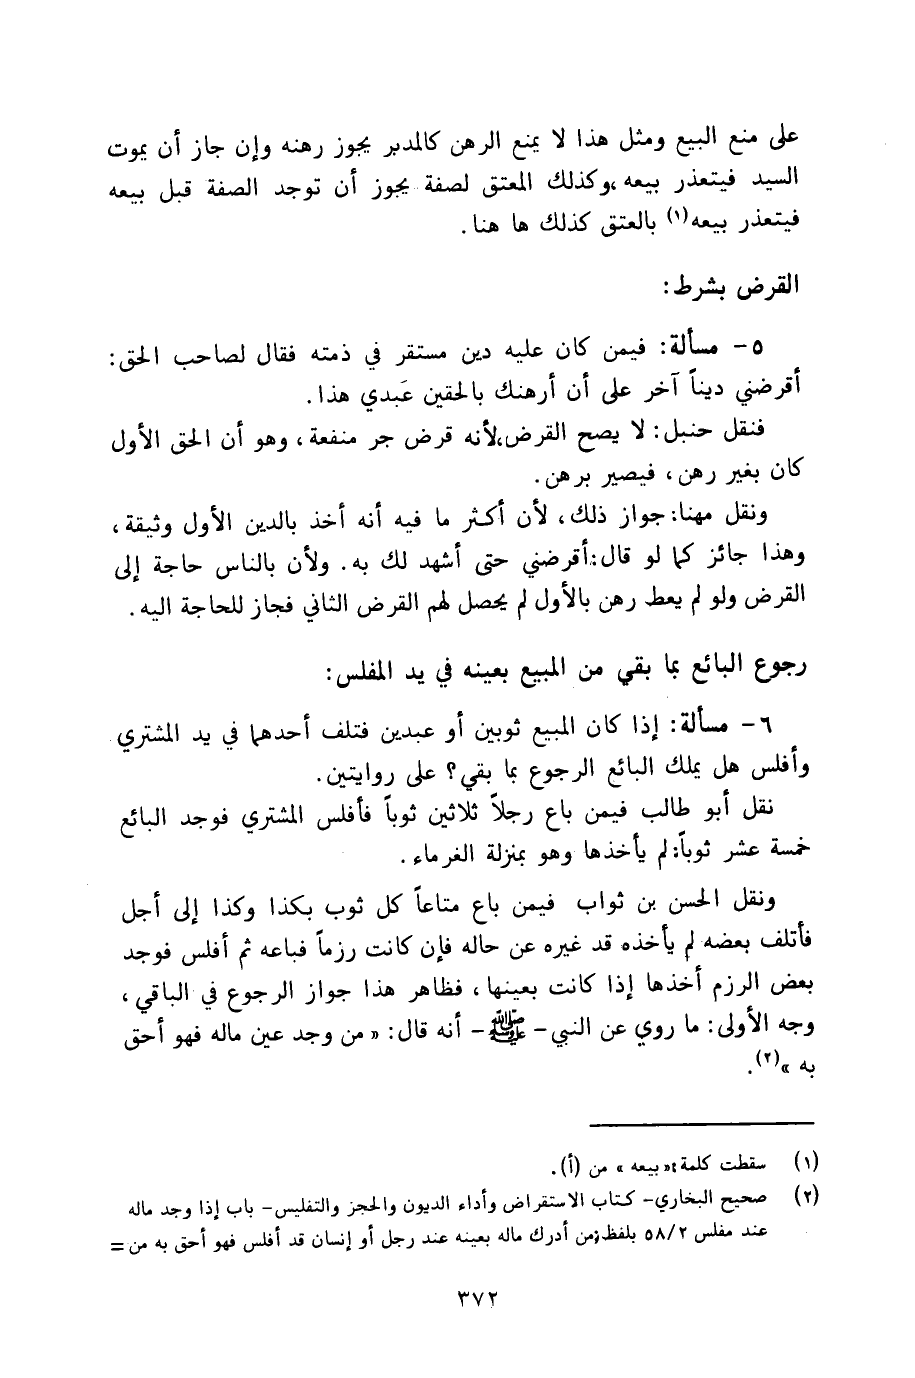 على منع البيع ومثل هذا لا يمنع الرهن كالمدبر يجوز رهنه وإن جاز أن يموت
السيد فيتعذر بيعه ،وكذلك المعتق لصفة يجوز أن توجد الصفة قبل بيعه
فيتعذر بيعه(١) بالعتق كذلك ها هنا .
القرض بشرط:
٥- مسألة: فيمن كان عليه دين مستقر في ذمته فقال لصاحب الحق:
أقرضني ديناً آخر على أن أرهنك بالحقين عَبدي هذا .
فنقل حنبل: لا يصح القرض،لأنه قرض جر منفعة، وهو أن الحق الأول
كان بغير رهن، فيصير برهن .
ونقل مهنا: جواز ذلك، لأن أكثر ما فيه أنه أخذ بالدين الأول وثيقة،
وهذا جائز كما لو قال:أقرضني حتى أشهد لك به. ولأن بالناس حاجة إلى
القرض ولو لم يعط رهن بالأول لم يحصل لهم القرض الثاني فجاز للحاجة اليه .
رجوع البائع بما بقي من المبيع بعينه في يد المفلس:
٦- مسألة: إذا كان المبيع ثوبين أو عبدين فتلف أحدهما في يد المشتري
وأفلس هل يملك البائع الرجوع بما بقي؟ على روايتين .
نقل أبو طالب فيمن باع رجلاً ثلاثين ثوباً فأفلس المشتري فوجد البائع
خمسة عشر ثوباً: لم يأخذها وهو بمنزلة الغرماء .
ونقل الحسن بن ثواب فيمن باع متاعاً كل ثوب بكذا وكذا إلى أجل
فأتلف بعضه لم يأخذه قد غيره عن حاله فإن كانت رزماً فباعه ثم أفلس فوجد
بعض الرزم أخذها إذا كانت بعينها، فظاهر هذا جواز الرجوع في الباقي،
وجه الأولى: ما روي عن النبي - ﷺ - أنه قال: « من وجد عين ماله فهو أحق
به »(٢) .
(١) سقطت كلمة: « بيعه » من (أ) .
(٢) صحيح البخاري- كتاب الاستقراض وأداء الديون والحجز والتفليس- باب إذا وجد ماله
عند مفلس ٥٨/٢ بلفظ: من أدرك ماله بعينه عند رجل أو إنسان قد أفلس فهو أحق به من =
٣٧٢